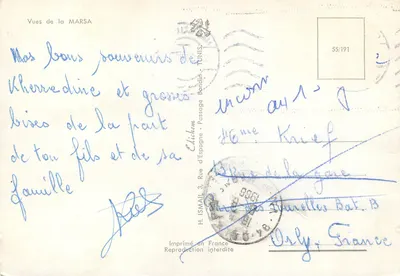 Vues de la MARSA
Nos bons souvenirs de
Kherredine et grosses
bises de la part
de ton fils et de sa
famille
Edition
H. ISMAIL, 3, Rue d'Espagne - Passage
Imprimé en France
Reproduction interdite
55/191
inconnu
au 1
Mme Krief
Rue de la gare
Bat. B
Orly, France